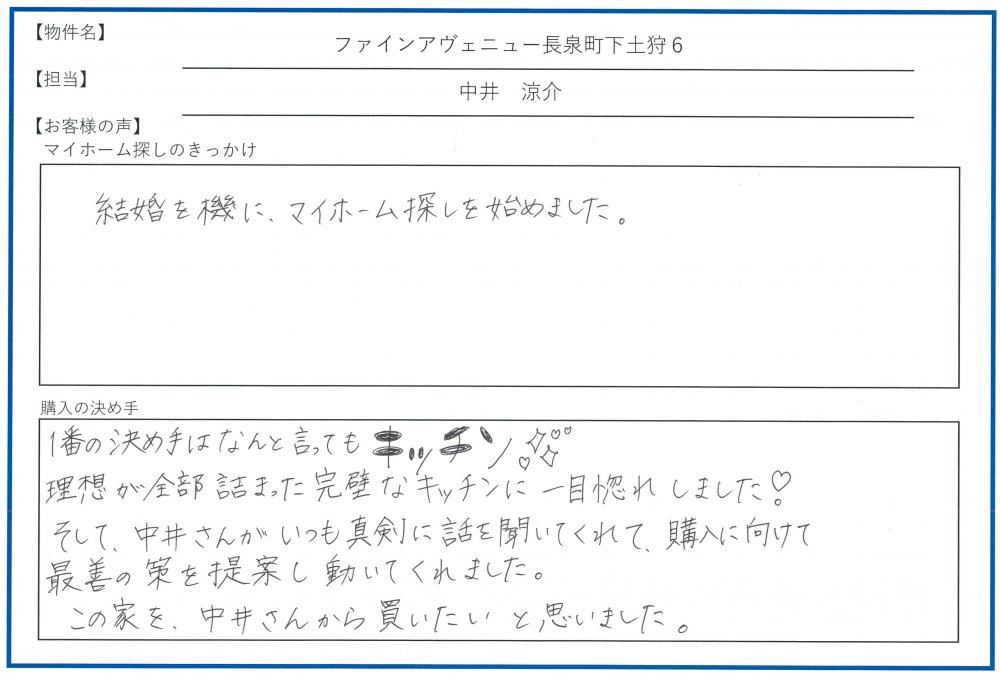 【物件名】
ファインアヴェニュー長泉町下土狩6
【担当】
中井　涼介
【お客様の声】
マイホーム探しのきっかけ
結婚を機に、マイホーム探しを始めました。
購入の決め手
1番の決め手はなんと言ってもキッチン♡♡♡
理想が全部詰まった完璧なキッチンに一目惚れしました♡
そして、中井さんがいつも真剣に話を聞いてくれて、購入に向けて
最善の策を提案し動いてくれました。
この家を、中井さんから買いたいと思いました。